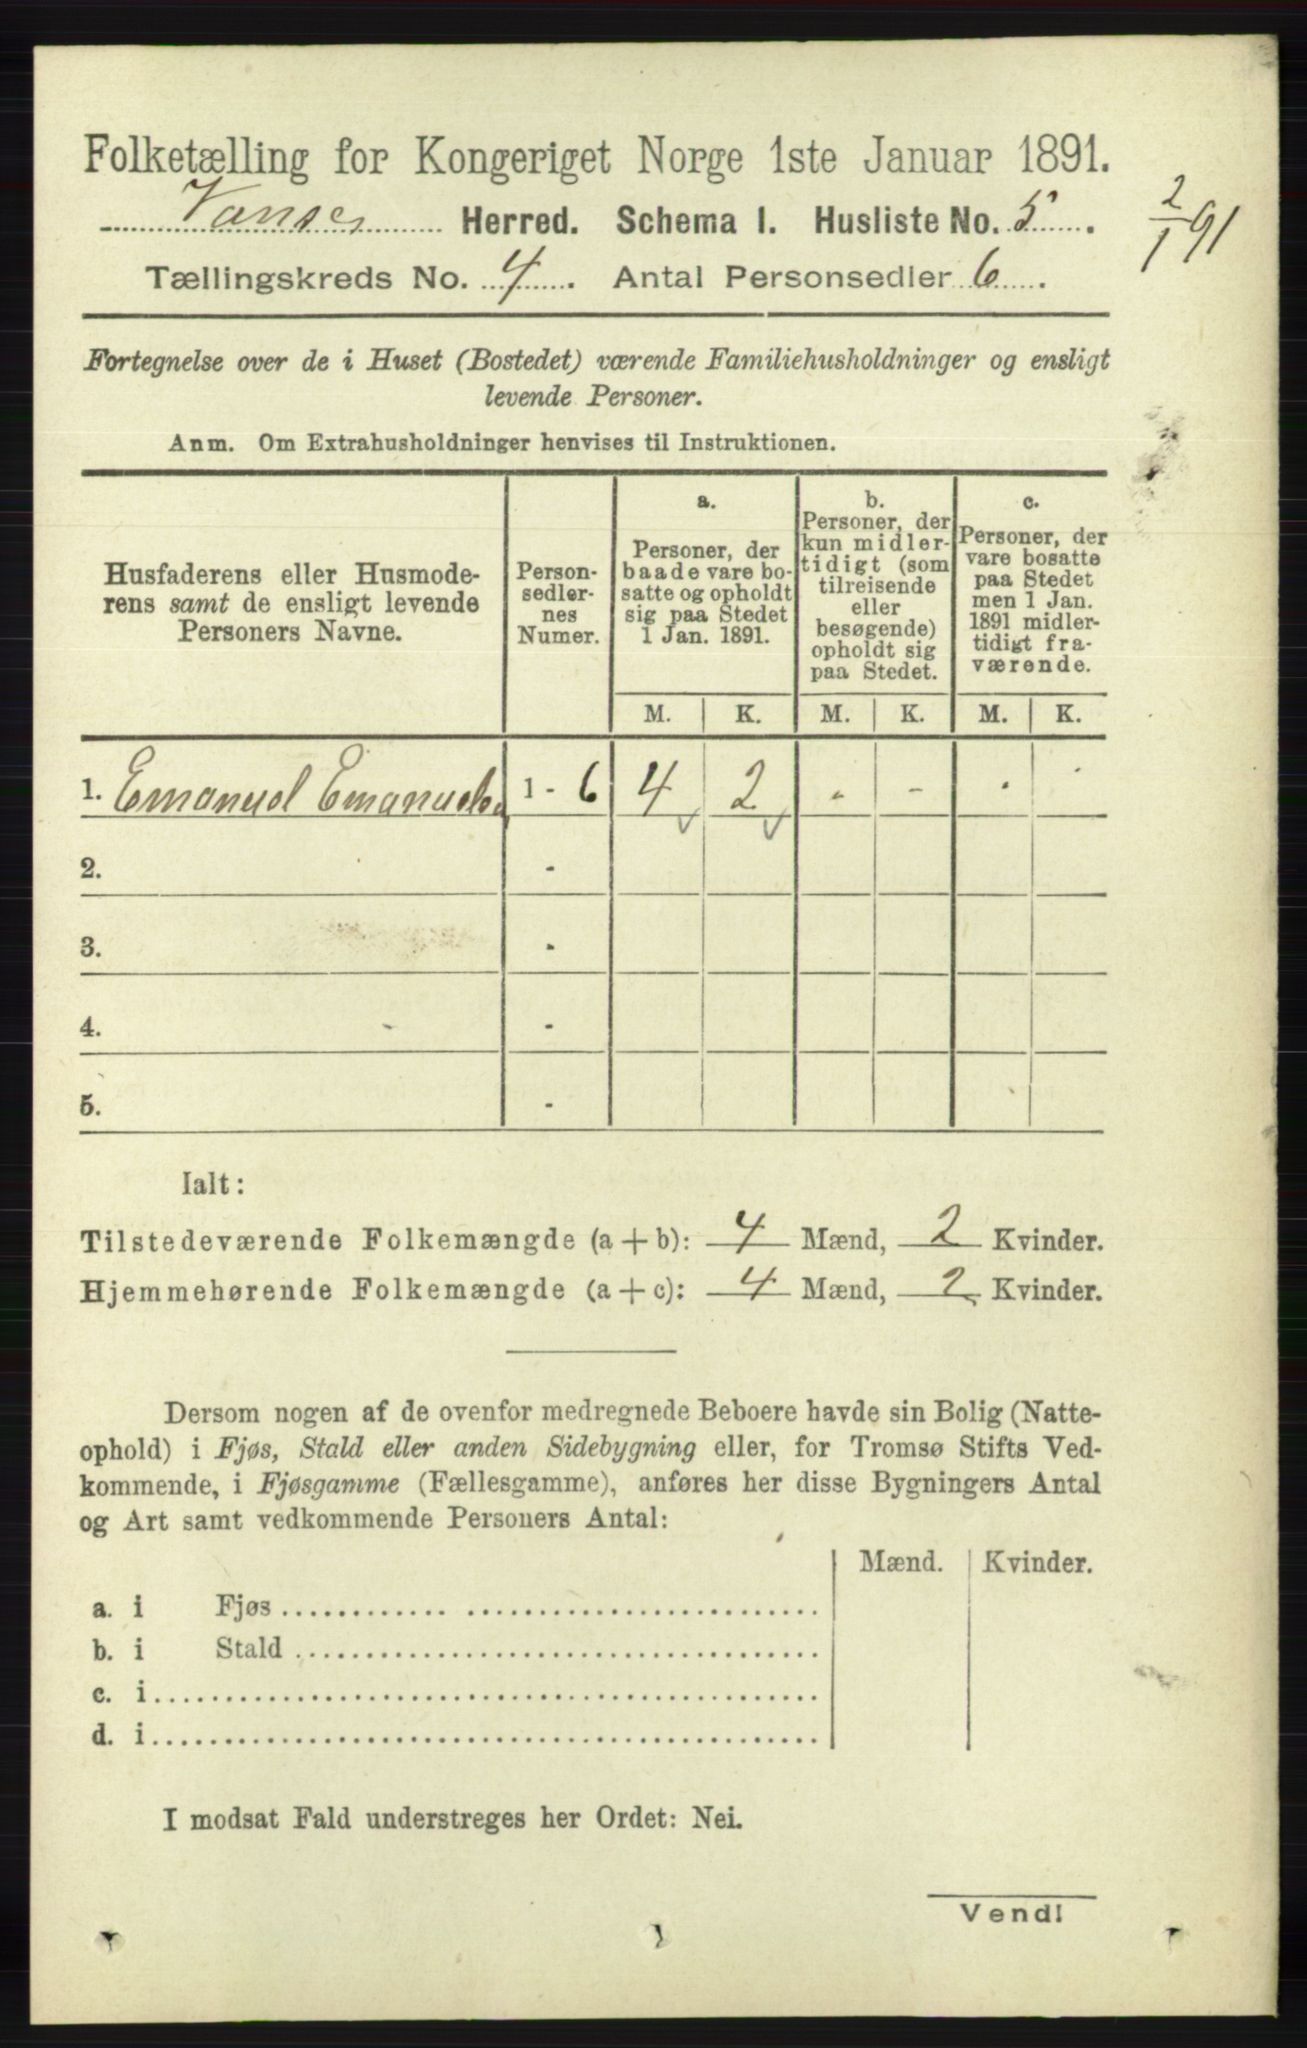 Folketælling for Kongeriget Norge 1ste Januar 1891.
Vanse Herred. Schema I. Husliste No. 5.
2/1 91
Tællingskreds No. 4. Antal Personsedler 6.
Fortegnelse over de i Huset (Bostedet) værende Familiehusholdninger og ensligt
levende Personer.
Anm. Om Extrahusholdninger henvises til Instruktionen.
Husfaderens eller Husmode-
rens samt de ensligt levende
Personers Navne.
Person-
sedler-
nes
Numer.
a.
Personer, der
baade vare bo-
satte og opholdt
sig paa Stedet
1 Jan. 1891.
b.
Personer, der
kun midler-
tidigt (som
tilreisende
eller
besøgende)
opholdt sig
paa Stedet.
c.
Personer, der
vare bosatte
paa Stedet
men 1 Jan.
1891 midler-
tidigt fra-
værende.
M. K. M. K. M. K.
1. Emanuel Emanuels. 1 - 6 4 2 - - . .
2. -
3. -
4. -
5. -
Ialt:
Tilstedeværende Folkemængde (a + b): 4 Mænd, 2 Kvinder.
Hjemmehørende Folkemængde (a + c): 4 Mænd, 2 Kvinder.
Dersom nogen af de ovenfor medregnede Beboere havde sin Bolig (Natte-
ophold) i Fjøs, Stald eller anden Sidebygning eller, for Tromsø Stifts Ved-
kommende, i Fjøsgamme (Fællesgamme), anføres her disse Bygningers Antal
og Art samt vedkommende Personers Antal:
Mænd. Kvinder.
a. i Fjøs
b. i Stald
c. i
d. i
I modsat Fald understreges her Ordet: Nei.
Vend!